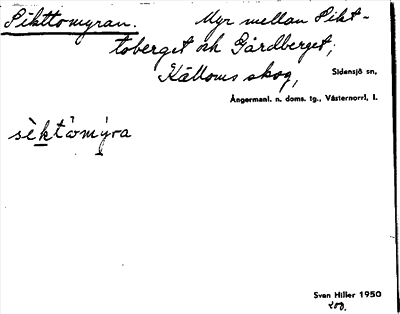 Sikttomyran. Myr mellan Sikt-
toberget och Gårdberget,
Källoms skog, Sidensjö sn,
Ångermanl. n. doms. tg., Västernorrl. l.
sèktòmýra
Sven Hiller 1950